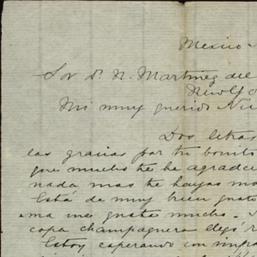 Mexico
Sor Dn N. Martinez del
New Yo
Mi muy querido Ni
Dos letras
las gracias por tu bonito
que mucho te he agradec
nada mas te hayas mo
Está de muy buen gusto
ma me gusta mucho.
copa champagnera llegó r
Estoy esperando con